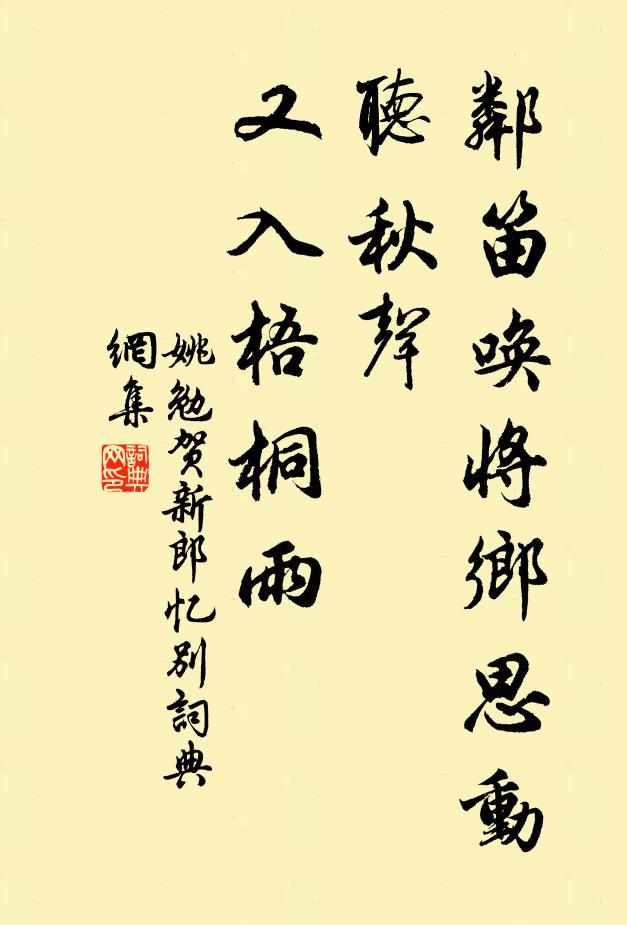 鄰笛喚將鄉思動
聽秋聲
又入梧桐雨
姚勉贺新郎忆別詞典
網集
詞典
网印